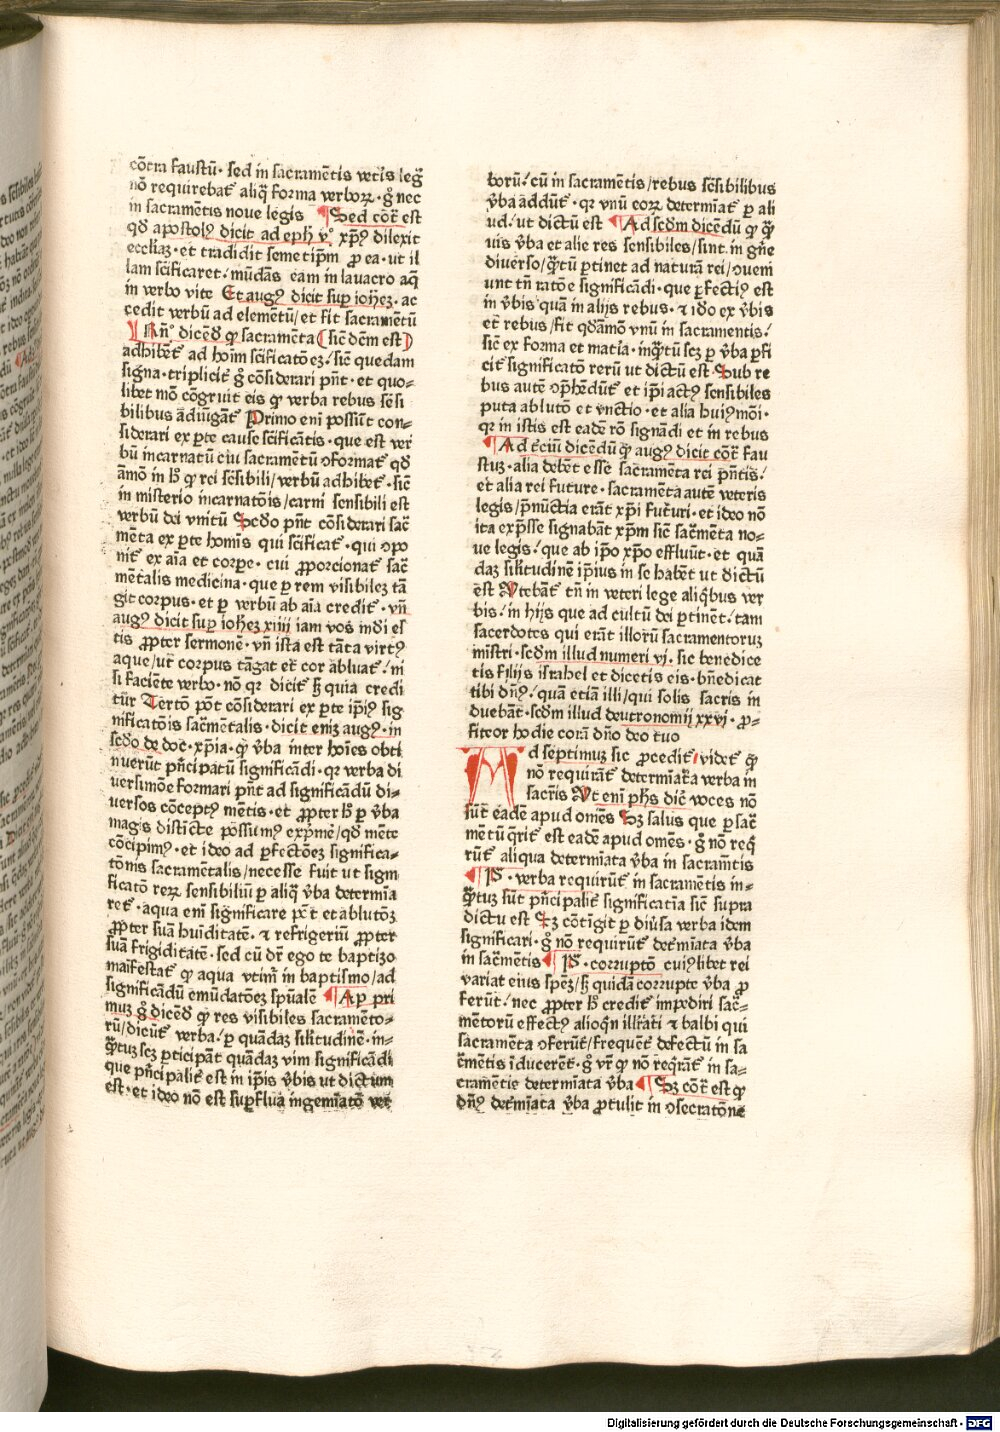 cōtra faustū· sed in sacramētis vet̄is leḡ
nō requirebat̄ aliq̄ forma verboꝝ· gͦ nec
in sacramētis noue legis ¶ Sed cōt̄ est
qd̄ apostolꝰ dicit ad eph̄ vͦ· xp̄ꝰ dilexit
eccliaꝫ· et tradidit semetip̄m ꝓ ea· ut il
lam scīficaret/ mūdās eam in lauacro aq̄
in verbo vite Et augꝰ dicit suꝑ ioh̄eꝫ· ac
cedit verbū ad elemētū/ et fit sacramētū
¶ Rn̄ͦ dicēdͦ ꝙ sacramēta (sic̄ dc̄m est)
adhibēt̄ ad hoīm scīficatōeꝫ/ sic̄ quedam
signa· triplicit̄ gͦ cōsiderari pn̄t· et quo⸗
libet mō cōgruit eis ꝙ verba rebus sēsi
bilibus ādiūgāt̄ Primo eni possūt con⸗
siderari ex ꝑte cause scīficātis· que est ver
bū incarnatū cui sacramētū ↄformat̄ qd̄
āmō in hͦ ꝙ rei sēsibili/ verbū adhibet̄· sic̄
in misterio incarnatōis/ carni sensibili est
verbū dei vnitū Sc̄do pn̄t cōsiderari sac̄
mēta ex ꝑte homīs qui scīficat̄· qui ↄpo
nit̄ ex aīa et corpe· cui ꝓporcionat̄ sac̄
mētalis medicina· que ꝑ rem visibileꝫ tā
git corpus· et ꝑ verbū ab aīa credit̄· vn̄
augꝰ dicit suꝑ ioh̄eꝫ xiiii iam vos mūdi es
tis ꝓpter sermonē· vn̄ ista est tāta virtꝰ
aque/ ut̄ corpus tāgat et̄ cor abluat/ ni
si faciēte verbo· nō qꝛ dicit̄ sꝫ quia credi
tūr Terto pōt cōsiderari ex ꝑte ip̄iꝰ sig
nificatōis sac̄mētalis· dicit eniꝫ augꝰ· in
sc̄do de doc̄· xp̄ia· ꝙ v̄ba inter hoīes obti
nuerūt pn̄cipatū significādi· qꝛ verba di
uersimōe formari pn̄t ad significādū di⸗
uersos cōceptꝰ mētis· et ꝓpter hͦ ꝑ v̄ba
magis distīcte possumꝰ exp̄mē/ qd̄ mēte
cōcipimꝰ· et ideo ad ꝑfectōeꝫ significa⸗
tōnis sacramētalis/ necesse fuit ut sigm
ficatō reꝝ sensibiliū ꝑ aliq̄ v̄ba determīa
ret̄· aqua eni significare pōt et ablutōꝫ
ꝓpter suā huīditatē· ⁊ refrigeriū ꝓpter
suā frigiditatē· sed cū dr̄ ego te baptiꝫo
maīfestat̄ ꝙ aqua vtim̄ in baptismo/ ad
significādū emūdatōeꝫ spūalē ¶ Aꝑ pri
muꝫ gͦ dicēdͦ ꝙ res visibiles sacramēto⸗
rū/ dicūt̄ verba/ ꝑ quādaꝫ silitudinē· in⸗
q̄tuꝫ scꝫ ꝑticipāt quādaꝫ vim significādi
que pn̄cipalit̄ est in ip̄is v̄bis ut dictum
est· et ideo nō est suꝑflua ingemīatō ver
borū/ cū in sacramētis/ rebus sēsibilibus
v̄ba addūt̄· qꝛ vnū eoꝝ determīat̄ ꝑ ali
ud/ ut dictū est ¶ Ad scd̄m dicēdū ꝙ q̄ꝫ
uis v̄ba et alie res sensibiles/ sint in gn̄e
diuerso/ q̄tū ꝑtinet ad naturā rei/ ↄueni
unt tn̄ ratōe significādi· que ꝑfectiꝰ est
in v̄bis quā in alijs rebus· ⁊ iōo ex v̄bis
et̄ rebus/ fit qd̄āmō vnū in sacramentis/
sic̄ ex forma et mat̄ia· inq̄tū scꝫ ꝑ v̄ba ꝑfi
cit̄ significatō rerū ut dictū est· Sub re
bus autē ↄp̄hēdūt̄ et ip̄i actꝰ sensibiles
puta ablutō et vnctio· et alia huiꝰmōi·
qꝛ in istis est eadē rō signādi et in rebus
¶ Ad t̄ciū dicēdū ꝙ augꝰ dicit cōt̄ fau
stuꝫ· alia debēt esse sacramēta rei pn̄tis/
et alia rei future· sacramēta autē veteris
legis/ p̄nūctia erāt xp̄i fut̄uri· et ideo nō
ita exp̄sse signabāt xp̄m sic̄ sac̄mēta no⸗
ue legis/ que ab ip̄o xp̄o effluūt· et quā
daꝫ silitudinē ip̄ius in se habēt ut dictū
est Vtebāt̄ tn̄ in veteri lege aliq̄bus ver
bis/ in hijs que ad cultū dei ꝑtinēt/ tam
sacerdotes qui erāt illorū sacramentoruꝫ
mīstri· scd̄m illud numeri vj· sic benedice
tis filijs israhel et dicetis eis· bn̄edicat
tibi dn̄ꝰ/ quā etiā illi/ qui solis sacris in
duebāt· scd̄m illud deutronomij xxvj· ꝓ⸗
fiteor hodie corā dn̄o deo tuo
Ad septimuꝫ sic ꝓcedit̄/ videt̄ ꝙ
nō requirāt̄ determīat̄a verba in
sac̄ris Vt eni ph̄s dic̄ voces nō
sūt̄ eadē apud omēs Sꝫ salus que ꝑ sac̄
mētū q̄rit̄ est eadē apud omēs· gͦ nō req̄
rūt̄ aliqua determīata v̄ba in sacram̄tis
¶ P̄· verba requirūt̄ in sacramētis in⸗
q̄tuꝫ sūt pn̄cipalit̄ significatīa sic̄ supra
dictu est Sꝫ cōtīgit ꝑ diūsa verba idem
significari· gͦ nō requirūt̄ det̄mīata v̄ba
in sac̄mētis ¶ P̄· corruptō cuiꝰlibet rei
variat eius spēꝫ/ sꝫ quidā corrupte v̄ba ꝓ
ferūt/ nec ꝓpter hͦ credit̄ impediri sac̄⸗
mētorū effectꝰ alioqn̄ illr̄ati ⁊ balbi qui
sacramēta ↄferūt/ frequēt̄ defectū in sa
cm̄entis īducerēt· gͦ vr̄ ꝙ nō req̄rāt̄ in sa⸗
cramētis determīata v̄ba ¶ Sꝫ cōt̄ est ꝙ
dn̄ꝰ det̄mīata v̄ba ꝓtulit in ↄsecratōne
Digitalisierung gefördert durch die Deutsche Forschungsgemeinschaft - DFG